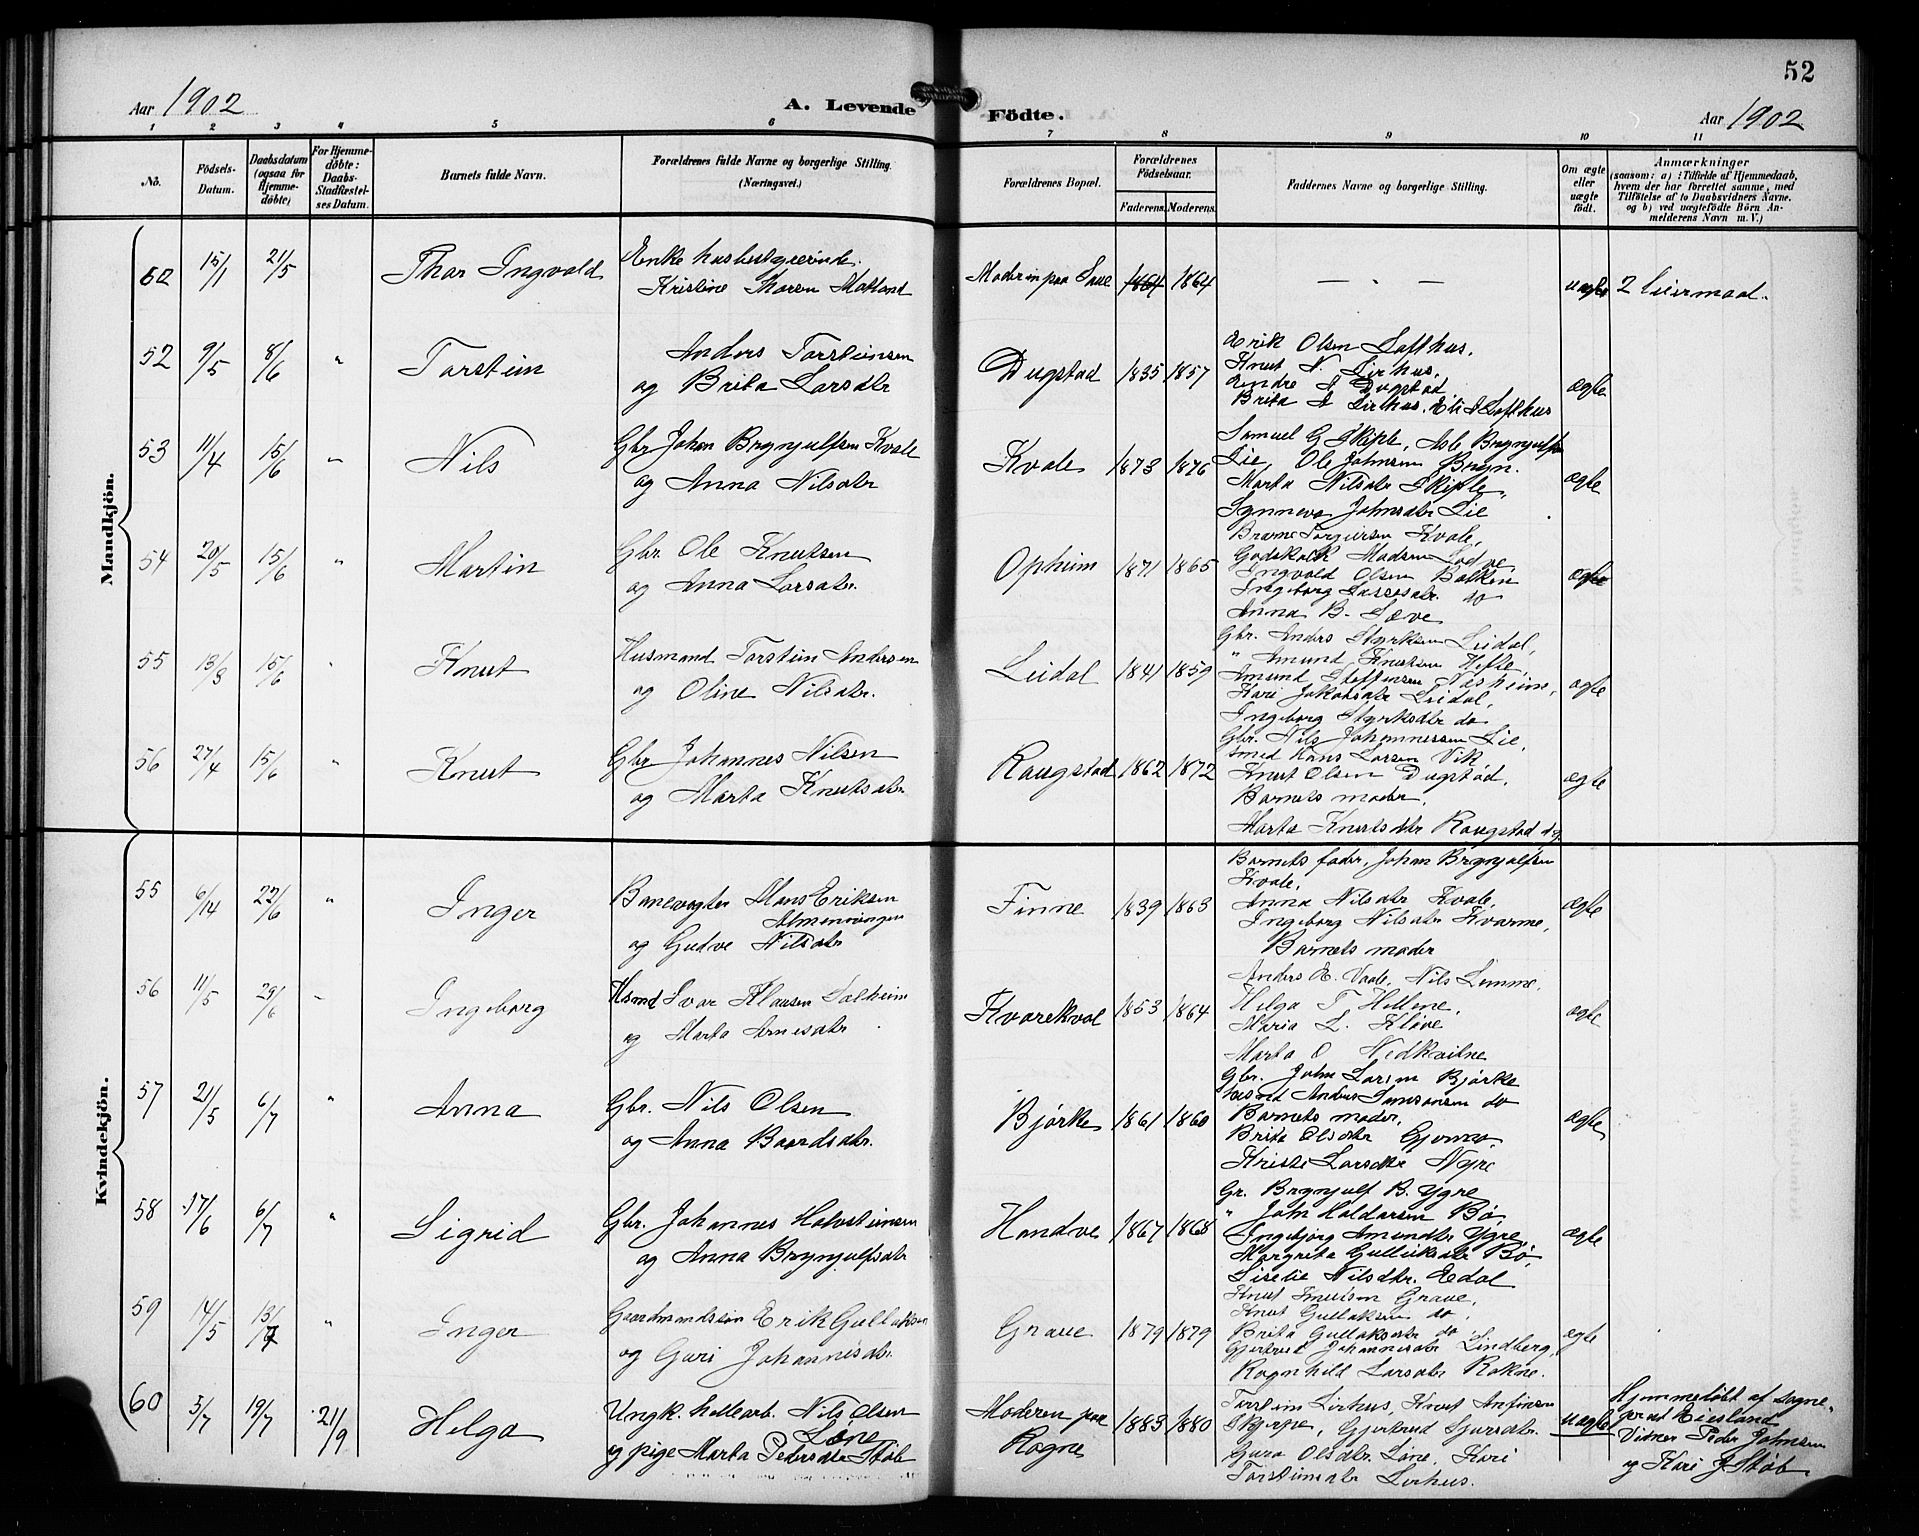 52
Aar 1902
A. Levende Födte.
Aar 1902
1 2 3 4 5 6 7 8 9 10 11
No.
Födsels-Datum.
Daabsdatum (ogsaa for Hjemme-döbte)
For Hjemme-döbte: Daabs-Stadfæstel-ses Datum.
Barnets fulde Navn.
Forældrenes fulde Navne og borgerlige Stilling.
(Næringsvei.)
Forældrenes Bopæl.
Forældrenes Födselsaar.
Faderens. Moderens.
Faddernes Navne og borgerlige Stilling.
Om ægte eller uægte födt.
Anmærkninger
(saasom: a) i Tilfælde af Hjemmedaab,
hvem der har forrettet samme, med
Tilföielse af to Daabsvidners Navne.
og b) ved uægtefödte Börn An-
melderens Navn m. V.)
Mandkjön.
15/1 21/5 Thor Ingvald
Enke
Kristine Thorsen Matland
Moderen paa 1864 1864 — " — uægte 2 leiermaal.
52 9/5 8/6 " Torstein
Anders Torsteinsen
og Brita Larsdtr
Dugstad 1835 1857
Erik Olsen Lofthus,
Knut N. Lirhus,
Endre A Dugstad
Brita A Lirhus, Eli Lofthus
ægte
53 11/4 15/6 " Nils
Gbr Johan Brynjulfsen Kvale
og Anna Nilsdtr
Kvale 1873 1876
Samuel G Skiple, Asle Brynjulfsen
Lie, Ole Johnsen Bryn.
Marta Nilsdtr Skiple,
Synneva Johnsdtr Lie
ægte
54 20/5 15/6 " Martin
Gbr Ole Knutsen
og Anna Larsdtr.
Opheim 1871 1865
Torgeirsen Kvale,
Godskalk Madsen
Ingvald Olsen Bakken
Ingeborg do
Anna B. Sæve
ægte
55 13/3 15/6 " Knut
Husmand Torstein Andersen
og Oline Nilsdtr.
Leidal 1841 1859
Gbr. Anders Styrksen Leidal,
" Amund Knutsen Hefte,
Amund Steffensen Nesheim,
Kari Jakobsdtr Leidal,
Ingeborg Styrksdtr do
ægte
56 27/4 15/6 " Knut
Gbr Johannes Nilsen
og Marta Knutsdtr
Raugstad 1862 1872
Gbr. Nils Johannessen Lie,
Smed Hans Larsen Vik
Knut Olsen Dugstad,
Barnets moder,
Marta Knutsdtr Raugstad
ægte
Kvindekjön.
55 6/14 22/6 " Inger
Banevogter Hans Eriksen
Almenningen
og Gudve Nilsdtr
Finne 1839 1863
Barnets fader, Johan Brynjulfsen
Kvale,
Anna Nilsdtr Kvale,
Ingeborg Nilsdtr Kvarme,
Barnets moder
ægte
56 11/5 29/6 " Ingeborg
Hsmd Ivar Klausen Solheim
og Marta Arnesdtr
Kvarekval 1853 1864
Anders E. Vaale, Nils Lemme,
Helga T Hellene,
Maria L. Kløve
Marta O Nedkvitne
ægte
57 21/5 6/7 " Anna
Gbr. Nils Olsen
og Anna Baardsdtr.
Bjørke 1861 1860
Gbr. John Larsen Bjørke
Husmd Anders Samsonsen do
Barnets moder,
Brita Olsdtr Gjerne,
Kriste Larsdtr Nyre
ægte
58 17/6 6/7 " Sigrid
Gbr. Johannes Halvsteinsen
og Anna Brynjulfsdtr
Handve 1867 1868
Gr. Brynjulf B. Ygre
" John Haldorsen Bø,
Ingebjørg Amundsdtr Ygre,
Margrita Gulleiksdtr Bø,
Liselie Nilsdtr. Edal
ægte
59 14/5 13/7 " Inger
Gaardmandssøn Erik Gullaksen
og Guri Johannesdtr.
Graue 1879 1879
Knut Knutsen Graue,
Knut Gullaksen do,
Brita Gullaksdtr do
Gjertrud Johannesdtr Lindberg,
Ragnhild Larsdtr Rokne.
ægte
60 5/7 19/7 21/9 Helga
Ungk. hellearb. Nils Olsen
Løne
og pige Marta Pedersdtr Støb
Moderen paa
Rogne 1883 1880
Torstein Lirhus, Knut Anfinsen
Skjerpe, Gjertrud Sjursdtr.
Guro Olsdtr Løne, Kari
Torsteinsdtr Lirhus.
uægte
Hjemmedøbt af sogne-
prest Eriesland
Vidner Peder Johnsen
og Kari J Støb